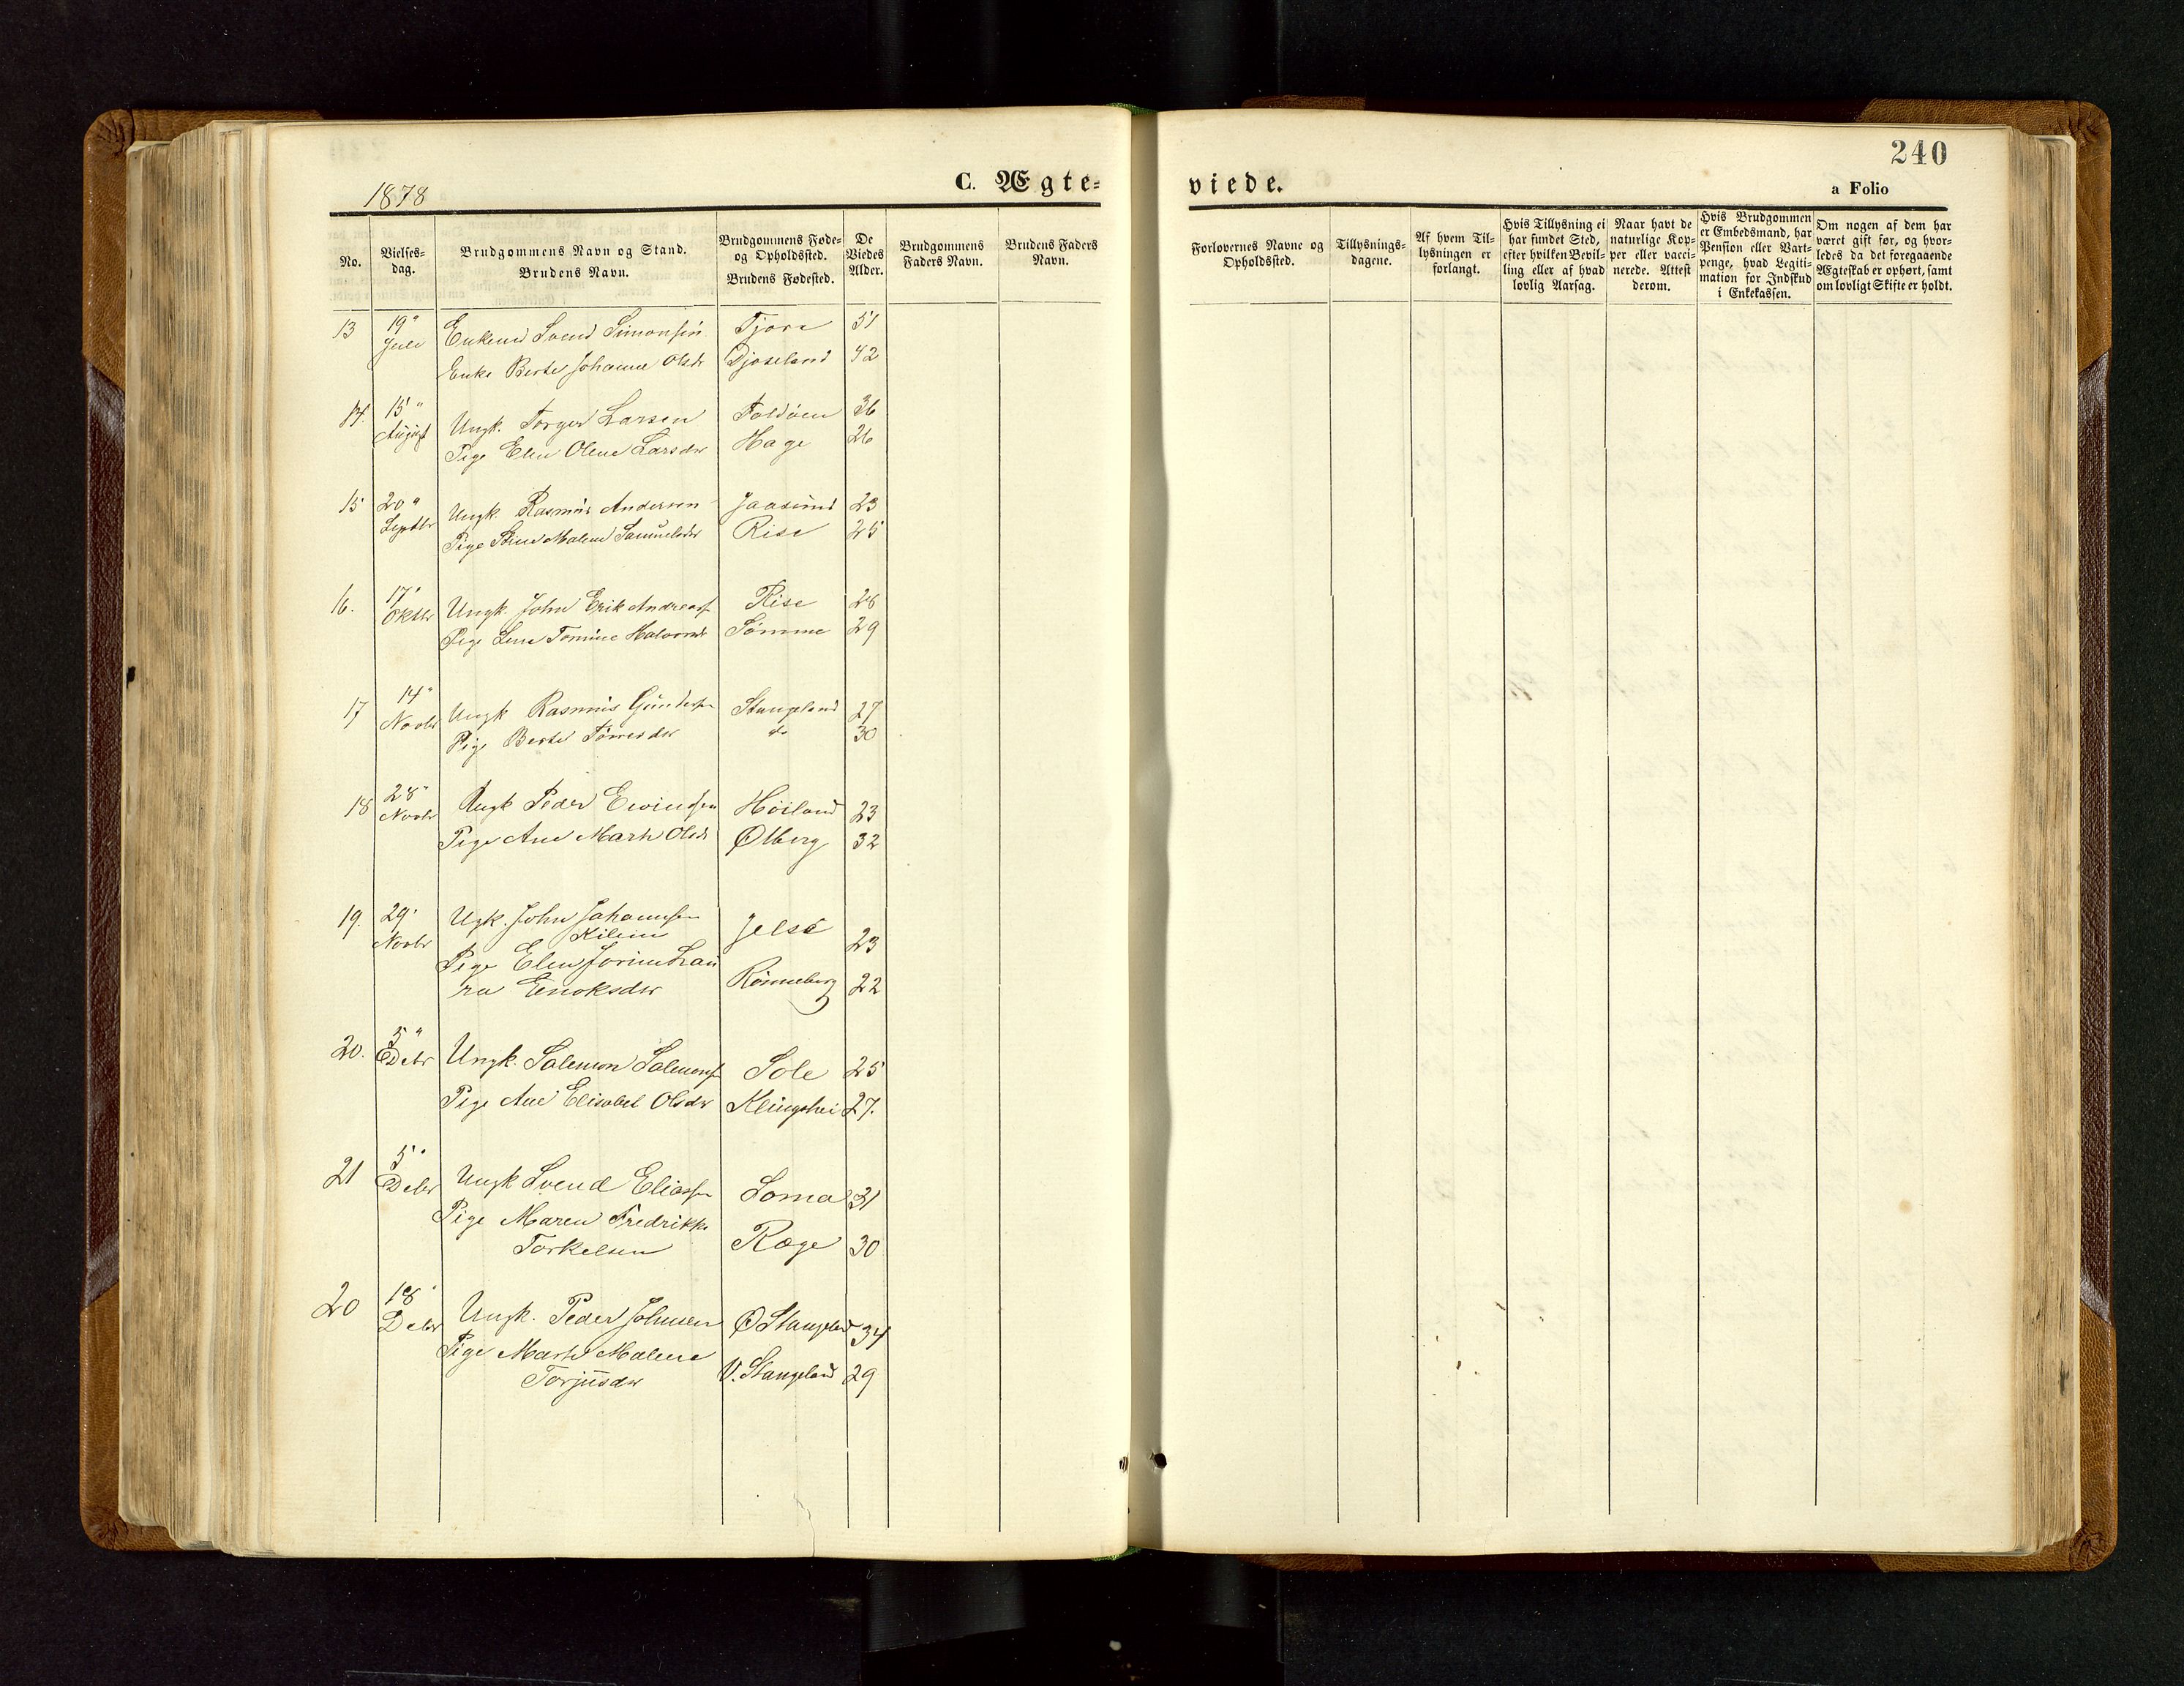 240
1878
C. Ægte=
viede.
a Folio
No.
Vielses=
dag.
Brudgommens Navn og Stand.
Brudens Navn.
Brudgommens Føde=
og Opholdssted.
Brudens Fødested.
De
Viedes
Alder.
Brudgommens
Faders Navn.
Brudens Faders
Navn.
Forlovernes Navne og
Opholdssted.
Tillysnings=
dagene.
Af hvem Til=
lysningen er
forlangt.
Hvis Tillysning ei
har fundet Sted,
efter hvilken Bevil=
ling eller af hvad
lovlig Aarsag.
Naar havt de
naturlige Kop=
per eller vacci=
nerede. Attest
derom.
Hvis Brudgommen
er Embedsmand, har
Pension eller Vart=
penge, hvad Legiti=
mation for Indskud
i Enkekassen.
Om nogen af dem har
været gift før, og hvor=
ledes da det foregaaende
Ægteskab er ophørt, samt
om lovligt Skifte er holdt.
13 19" Juli Enkem Svend Simonsen Tjora 51
Enke Berte Johanne Olsdr Djoseland 42
14. 15" August Ungk. Torger Larsen Foldöen 36
Pige Elen Olene Larsdr Hage 26
15 20" Septbr Ungk. Rasmus Andersen Jaasund 23
Pige Stine Malene Samuelsdr Rise 25
16. 17" Oktbr Ungk. John Erik Andreass Rise 28
Pige Lene Tomine Halvorsdr Sömme 29
17 14" Novbr Ungk Rasmus Gundersen Stangeland 27
Pige Berte Törresdr do 30
18 28" Novbr Ungk Peder Eivindsen Höiland 23
Pige Ane Marte Olsdr Ølberg 32
19. 29" Novbr Ugk. John Johannesen Jelse 23
Kilen
Pige Elen Jorine Lau
ra Enoksdr Rönneberg 22
20. 5" Debr Ungk. Salemon Salemons Sole 25
Pige Ane Elisabet Olsdr Klingshei 27.
21 5" Debr Ungk Svend Eliassen Soma 31
Pige Maren Fredrikke
Torkelsen Ræge 30
20 18" Debr Ungk. Peder Johnsen Ø Stangeland 34
Pige Marte Malene
Torjusdr V. Stangeland 29